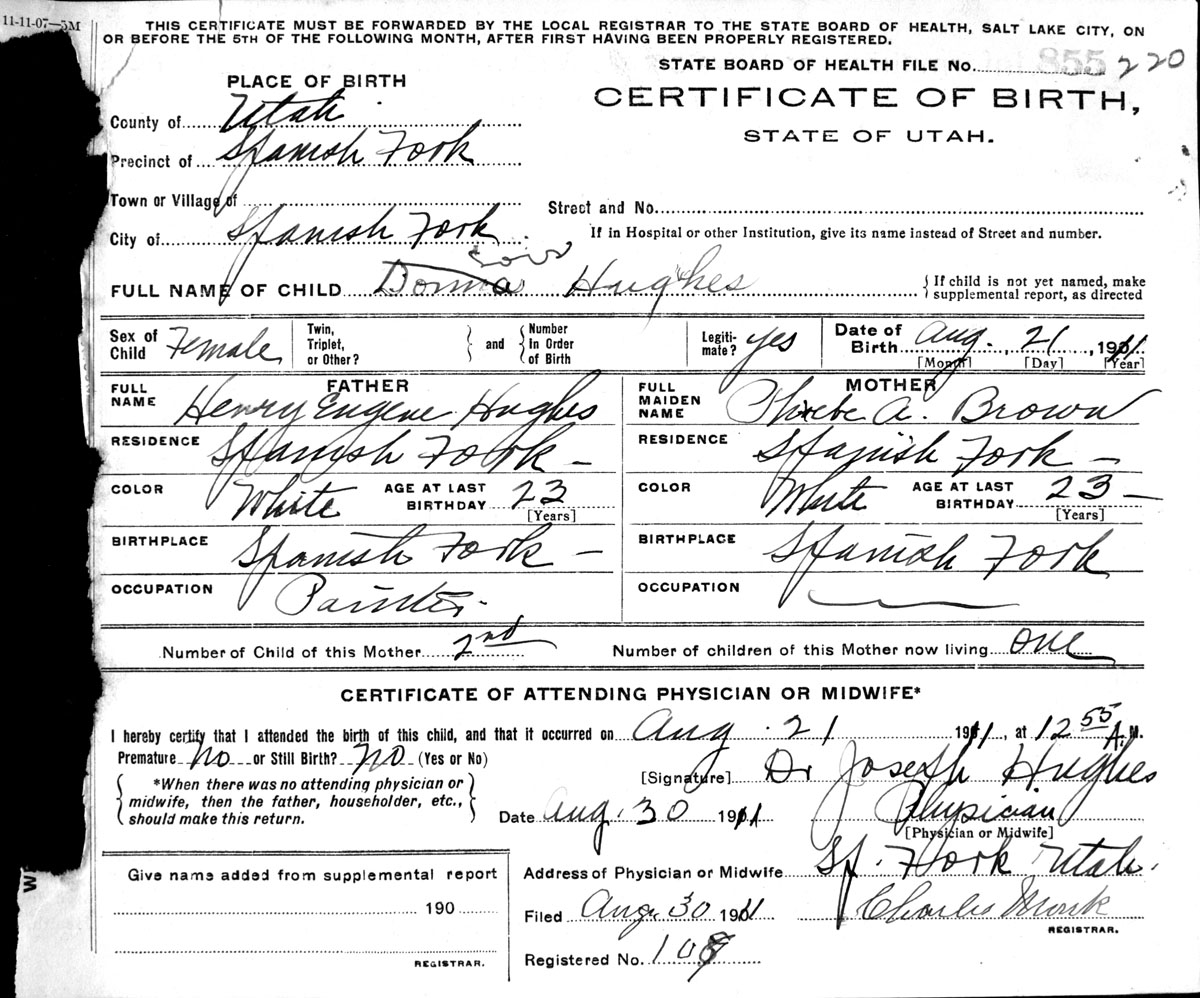 11-11-07—5M
THIS CERTIFICATE MUST BE FORWARDED BY THE LOCAL REGISTRAR TO THE STATE BOARD OF HEALTH, SALT LAKE CITY, ON
OR BEFORE THE 5TH OF THE FOLLOWING MONTH, AFTER FIRST HAVING BEEN PROPERLY REGISTERED.
STATE BOARD OF HEALTH FILE No. 855 220
PLACE OF BIRTH
CERTIFICATE OF BIRTH,
STATE OF UTAH.
County of Utah
Precinct of Spanish Fork
Town or Village of
Street and No.
City of Spanish Fork
If in Hospital or other Institution, give its name instead of Street and number.
FULL NAME OF CHILD Donna Hughes
If child is not yet named, make
supplemental report, as directed
Sex of Child Female Twin, Triplet, or Other? and Number In Order of Birth Legiti-mate? yes Date of Birth Aug. 21, 1911
[Month] [Day] [Year]
FATHER MOTHER
FULL NAME Henry Eugene Hughes FULL MAIDEN NAME Phoebe A. Brown
RESIDENCE Spanish Fork — RESIDENCE Spanish Fork —
COLOR White AGE AT LAST BIRTHDAY 23 [Years] COLOR White AGE AT LAST BIRTHDAY 23 — [Years]
BIRTHPLACE Spanish Fork — BIRTHPLACE Spanish Fork
OCCUPATION Painter. OCCUPATION —
Number of Child of this Mother 2nd Number of children of this Mother now living one
CERTIFICATE OF ATTENDING PHYSICIAN OR MIDWIFE*
I hereby certify that I attended the birth of this child, and that it occurred on Aug. 21 1911, at 12 55 A.M.
Premature No or Still Birth? No (Yes or No)
[Signature] Dr Joseph Hughes
*When there was no attending physician or
midwife, then the father, householder, etc.,
should make this return.
Date Aug. 30 1911 Physician
[Physician or Midwife]
Address of Physician or Midwife Sp. Fork Utah.
Give name added from supplemental report
190
REGISTRAR.
Filed Aug. 30 1911 Charles Monk
REGISTRAR.
Registered No. 108